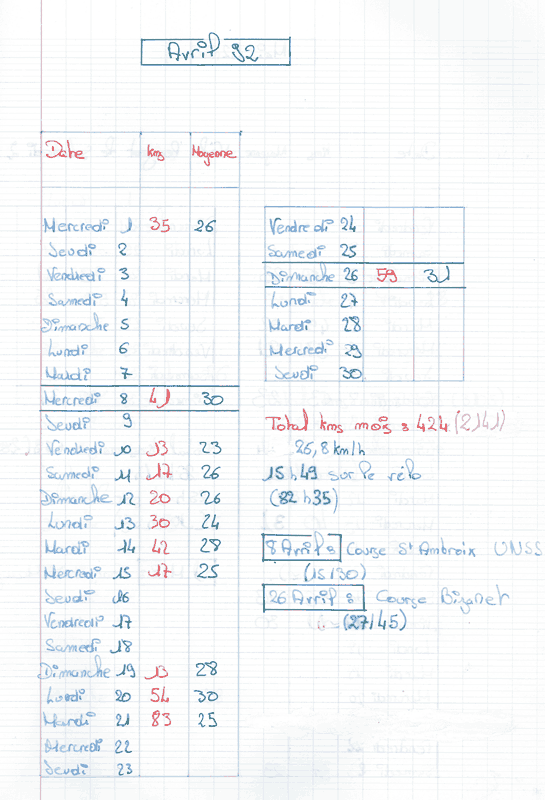 Avril 92
Date kms Moyenne
Mercredi 1 35 26
Jeudi 2
Vendredi 3
Samedi 4
Dimanche 5
Lundi 6
Mardi 7
Mercredi 8 41 30
Jeudi 9
Vendredi 10 13 23
Samedi 11 17 26
Dimanche 12 20 26
Lundi 13 30 24
Mardi 14 42 28
Mercredi 15 17 25
Jeudi 16
Vendredi 17
Samedi 18
Dimanche 19 13 28
Lundi 20 54 30
Mardi 21 83 25
Mercredi 22
Jeudi 23
Vendredi 24
Samedi 25
Dimanche 26 59 31
Lundi 27
Mardi 28
Mercredi 29
Jeudi 30
Total kms mois : 424 (2141)
26,8 km/h
15h49 sur le vélo
(82h35)
8 Avril : Course St Ambroix UNSS
(15/30)
26 Avril : Course Bizanet
(27/45)